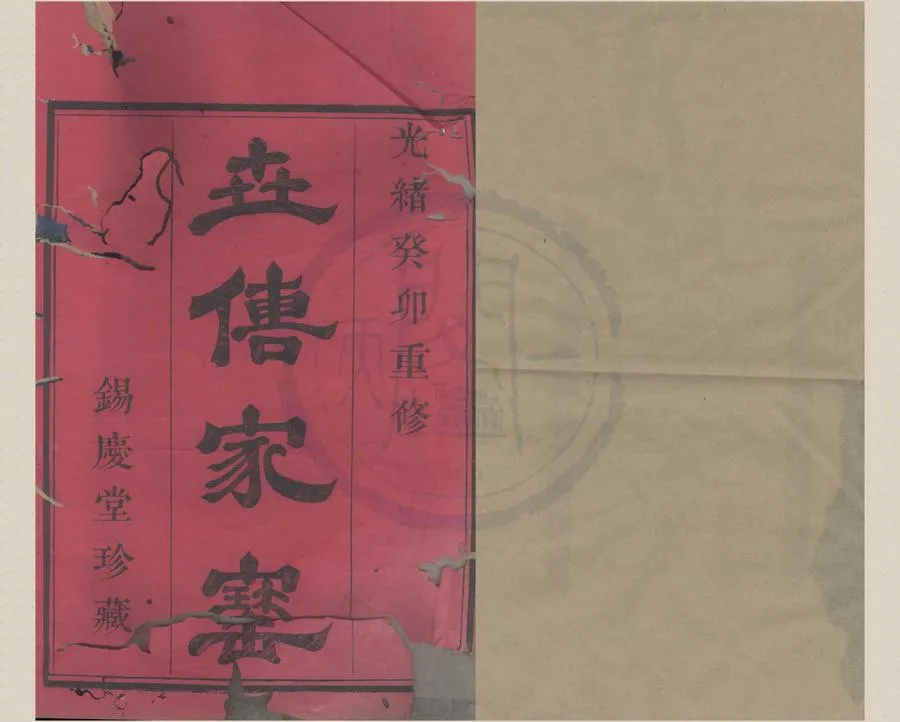 光緒癸卯重修
世傳家寶
錫慶堂珍藏